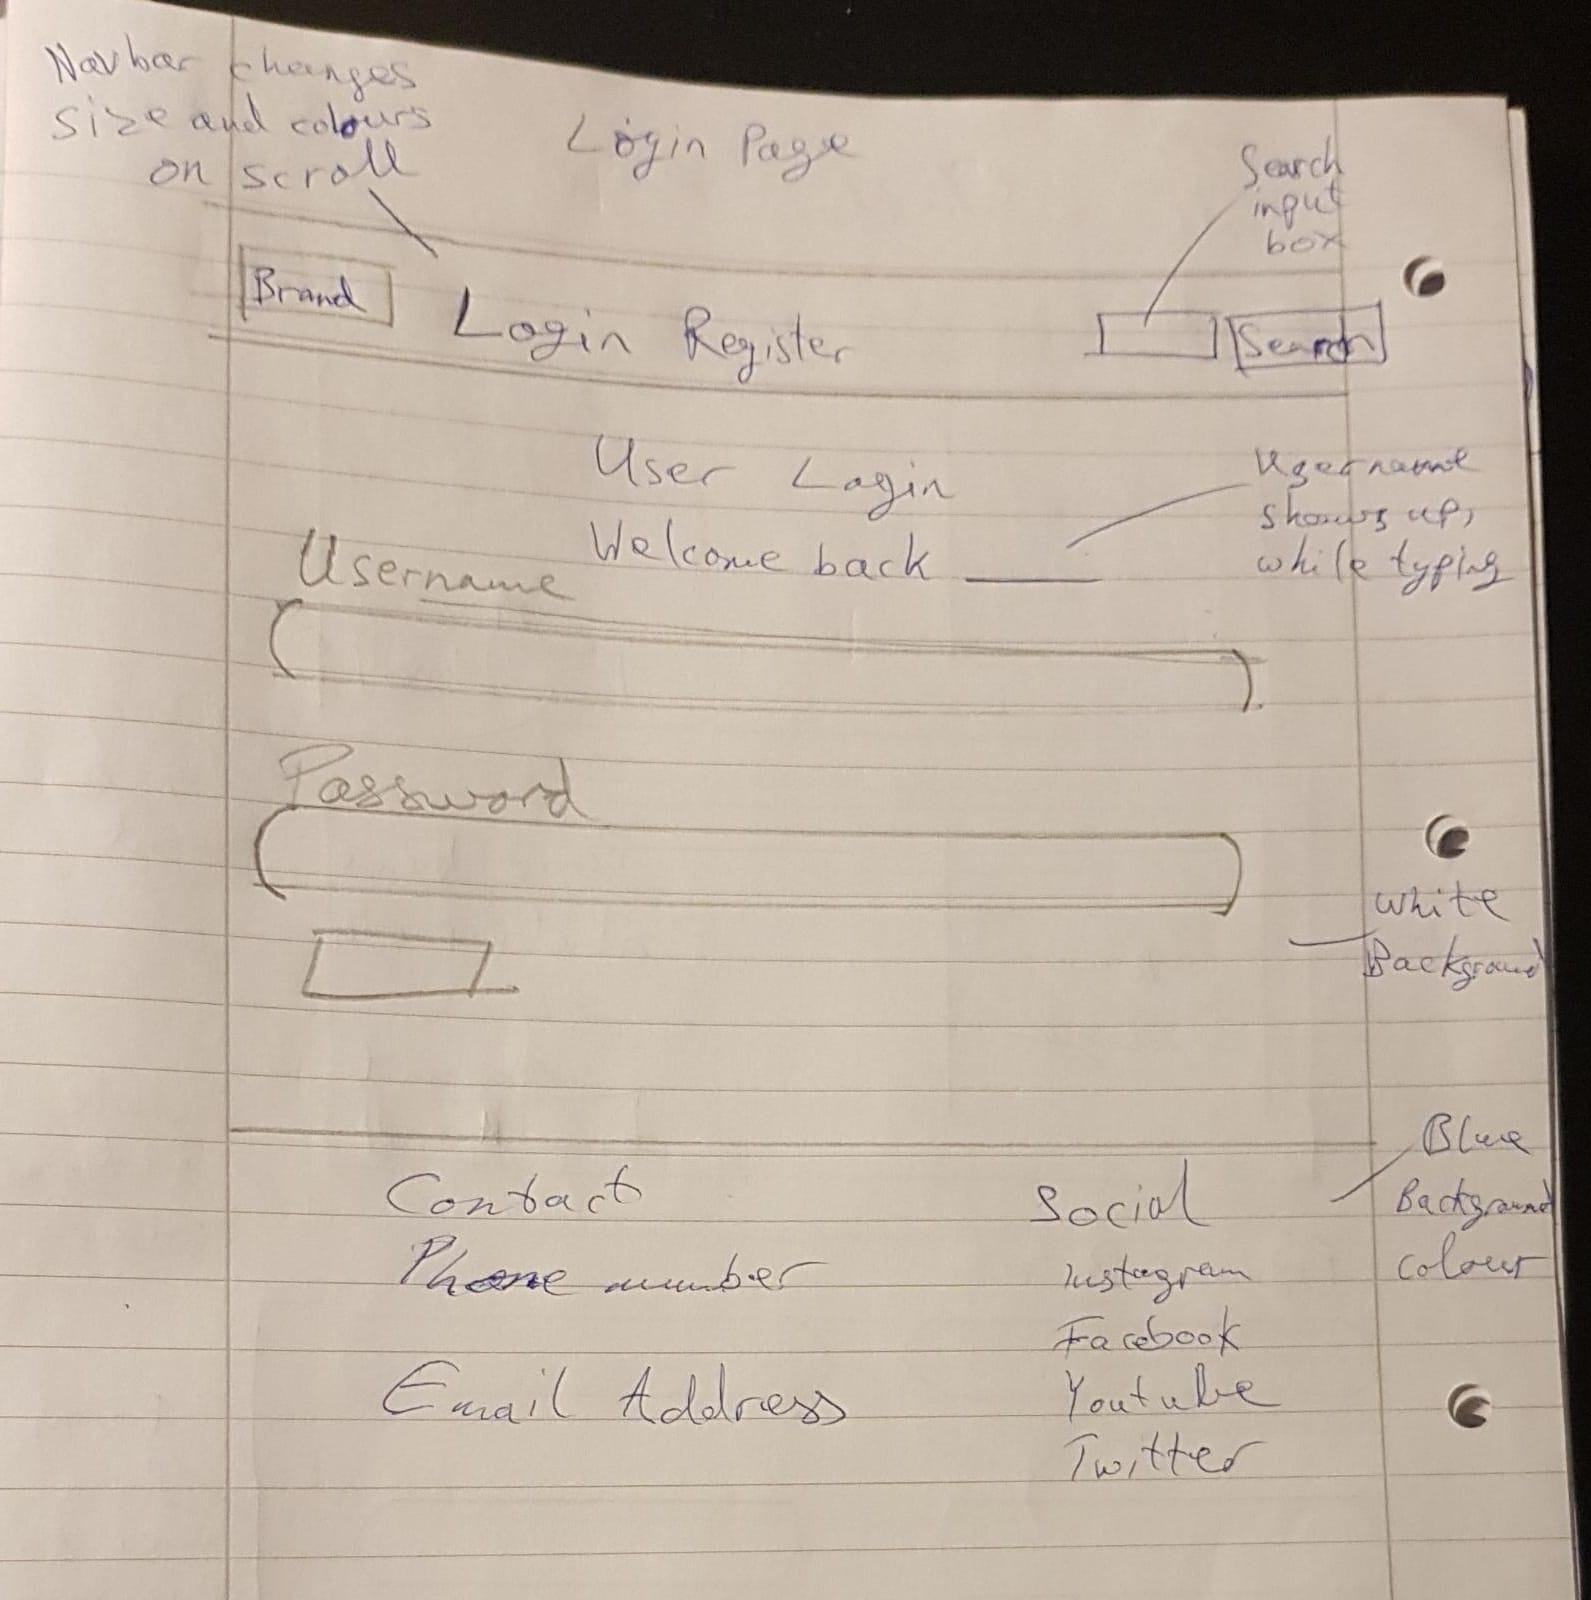 Navbar changes
size and colours
on scroll
Login Page
Search
input
box
Brand
Login Register
Search
User Login
Welcome back
Username
shows up,
while typing
Username
Password
white
Background
Contact
Phone number
Email Address
Social
Instagram
Facebook
Youtube
Twitter
Blue
Background
colour